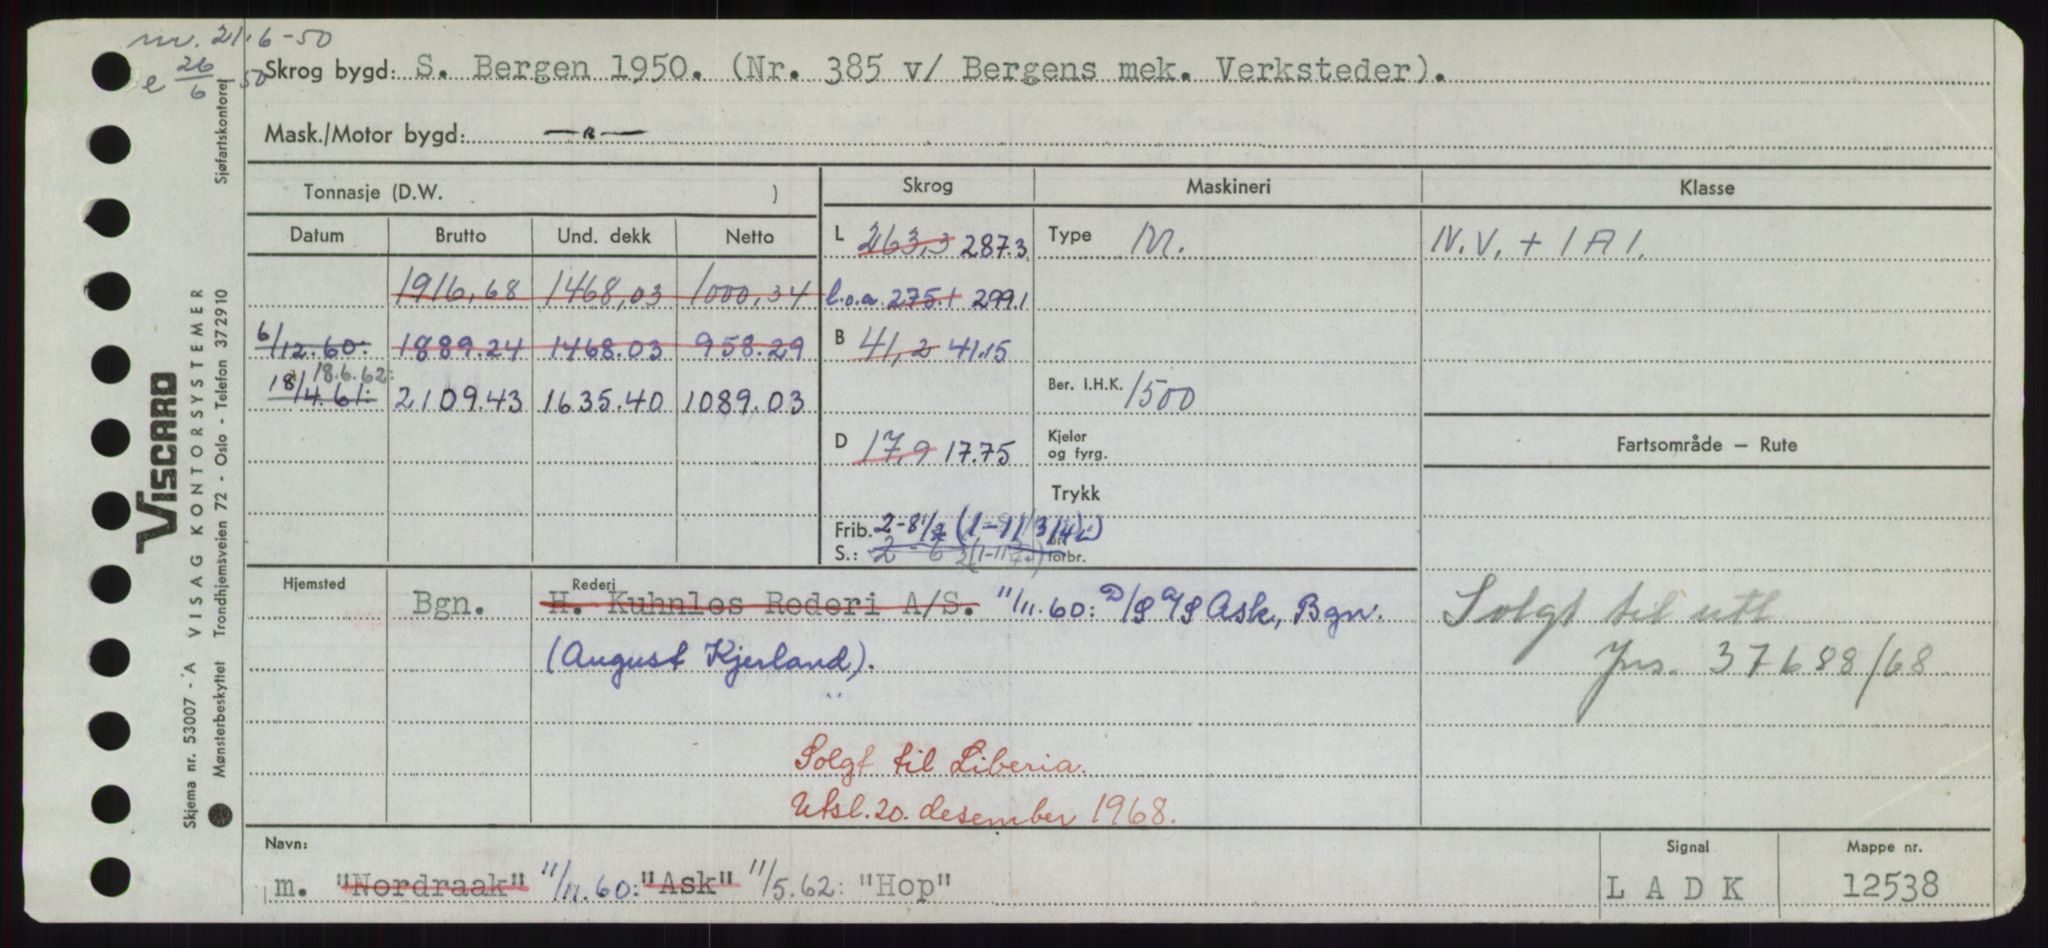 nr. 21.6-50
e 26/6 50
Skrog bygd: S. Bergen 1950. (Nr. 385 v/ Bergens mek. Verksteder).
Mask./Motor bygd: —"—
Tonnasje (D.W. )
Skrog
Maskineri
Klasse
Datum Brutto Und. dekk Netto
L 263,3 287.3
Type M.
N.V. + 1 A 1.
1916,68 1468,03 1000,34
l.o.a. 275.1 299.1
6/12.60. 1889.24 1468.03 958.29
B 41,2 41.15
18/4.61. 18.6.62: 2109.43 1635.40 1089.03
Ber. I.H.K. 1500
Fartsområde – Rute
D 17,9 17.75
Kjeler
og fyrg.
Trykk
Frib. 2-8 1/2 (1-9 1/3/4")
S.: forbr.
Hjemsted Bgn.
Rederi
H. Kuhnles Rederi A/S. 11/11.60: D/S A/S Ask, Bgn.
(August Kjerland).
Solgt til utl
Jns. 37688/68
Solgt til Liberia.
Utsl. 20. desember 1968.
Navn:
m. "Nordraak" 11/11.60: "Ask" 11/5.62: "Hop"
Signal
L A D K
Mappe nr.
12538
Skjema nr. 53007 - A VISAG KONTORSYSTEMER
VISCARD
Mønsterbeskyttet Trondhjemsveien 72 - Oslo - Telefon 372910
Sjøfartskontoret